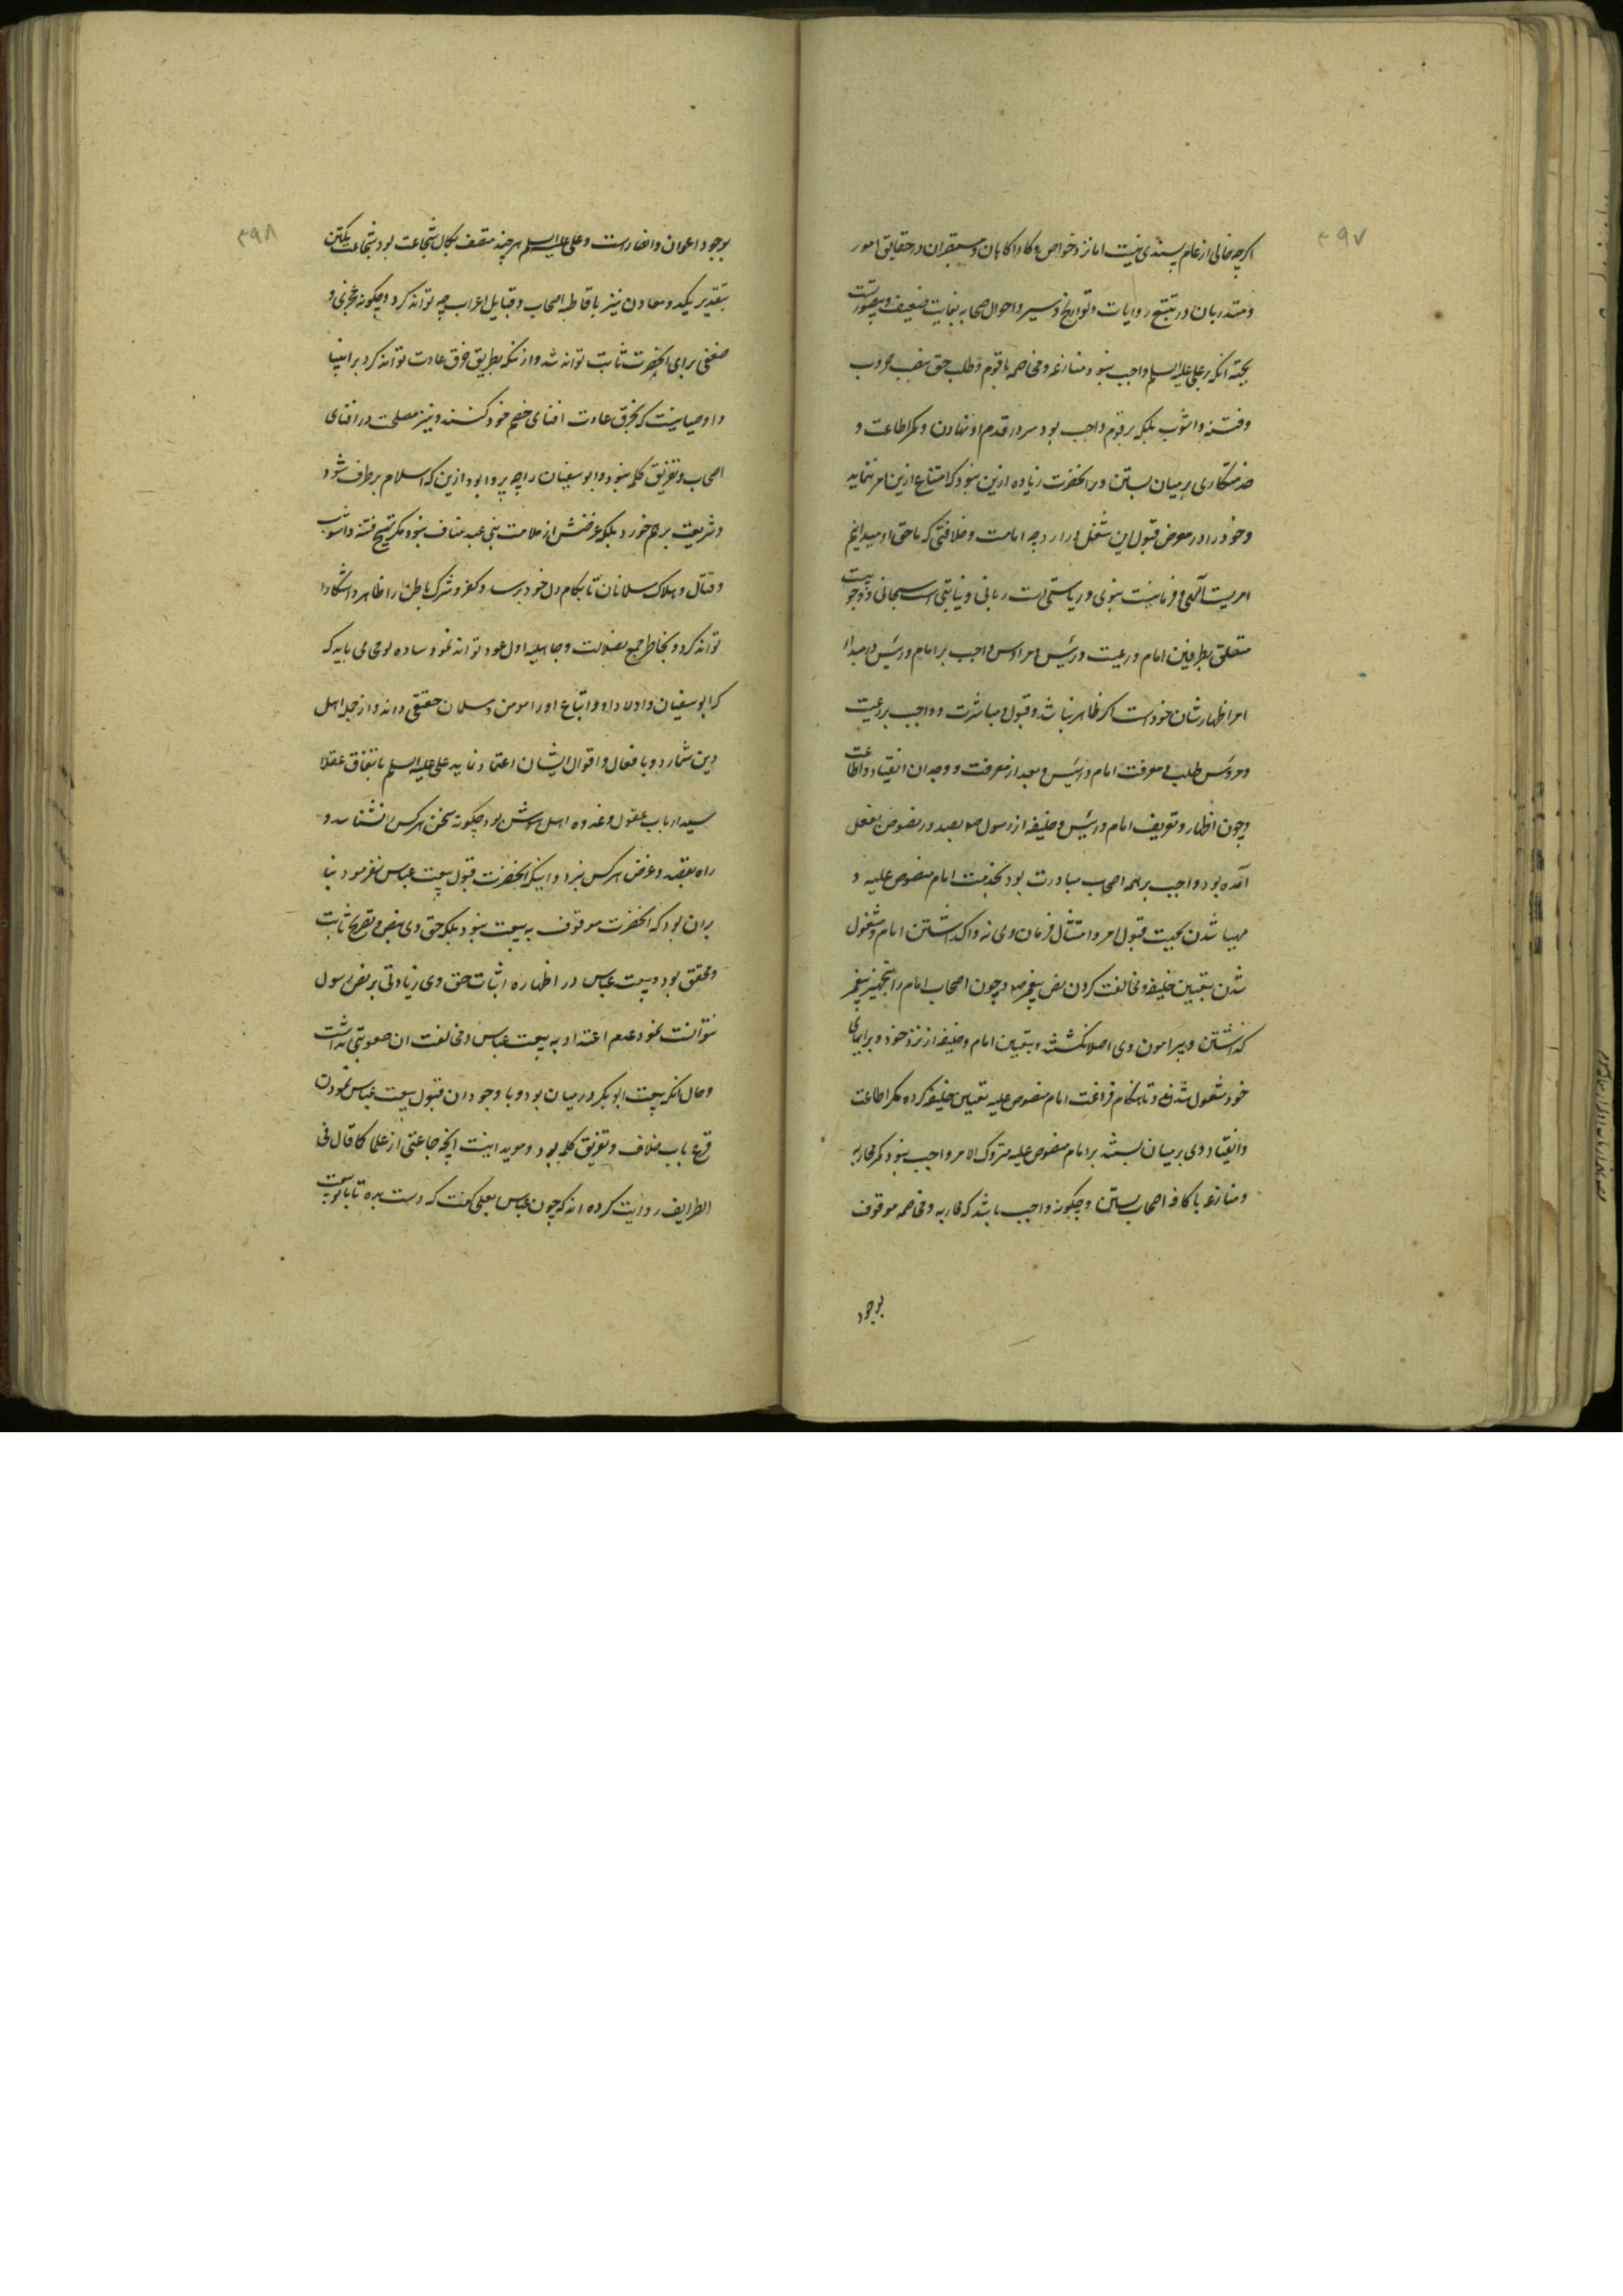 ۴۹۷
اکرچه خالی از عام پسندی نیست اما نزد خواص و کار اکاهان و مستبصران در حقایق امور
و متدربان در تتبع روایات و تواریخ و سیر و احوال صحابه بغایت ضعیف و بیصورتست
بجهة انکه بر علی علیه السلم واجب نبود منازعه و مخاصمه با قوم و طلب حق بنصب حروب
و فتنه و اشوب بلکه بر قوم واجب بود سر در قدم او نهادن و کمر اطاعت و
خدمتکاری بر میان بستن و بر انحضرت زیاده ازین نبود که امتناع ازین امر ننماید
و خود را در معرض قبول این شغل در ارد چه امامت و خلافتی که ما حق او میدانیم
امریست الهی و فرمانیست نبوی و ریاستی است ربانی و نیابتی است سبحانی و وجوبیت
متعلق بطرفین امام و رعیت و رئیس و مرؤس واجب بر امام و رئیس در مبداء
امر اظهار شان خود است اکر ظاهر نباشد و قبول و مباشرت و واجب بر رعیت
و مرؤس طلب و معرفت امام و رئیس و بعد از معرفت و وجدان انقیاد و اطاعت
و چون اظهار و تعریف امام و رئیس و خلیفه از رسول ص بصدور نصوص بفعل
آمده بود واجب بر همه اصحاب مبادرت بود بخدمت امام منصوص علیه و
مهیا شدن بجهت قبول امر و امتثال فرمان وی نه واکذاشتن امام و مشغول
شدن بتعیین خلیفه و مخالفت کردن نص پیغمبر ص و چون اصحاب امام را بتجهیز پیغمبر
کذاشتن و پیرامون وی اصلا نکشتند و بتعیین امام و خلیفه از نزد خود و برای
خود مشغول شدند و تا هنکام فراغت امام منصوص علیه تعیین خلیفه کرده کمر اطاعت
و انقیاد وی بر میان بستند بر امام منصوص علیه متروک الامر واجب نبود کمر محاربه
و منازعه با کافه اصحاب بستن و چکونه واجب باشد که محاربه و مخاصمه موقوف
بوجود
۴۹۸
بوجود اعوان و انصارست و علی علیه السلم هر چند متصف بکمال شجاعت بود شجاعت یکتن
بتقدیر یکدو معاون نیز با قاطبه اصحاب و قبایل اعراب چه تواند کرد و چکونه عجزی و
ضعفی برای انحضرت ثابت تواند شد و از انکه بطریق خرق عادت تواند کرد بر انبیا
و اوصیا نیست که بخرق عادت افنای خصم خود کنند و نیز مصلحت در افنای
اصحاب و تفریق کلمه نبود و ابو سفیان را چه پروا بود ازین که اسلام برطرف شود
و شریعت بر هم خورد بلکه غرضش از ملامت بنی عبد مناف نبود مکر تهییج فتنه و اشوب
و قتال و هلاک مسلمانان تا بکام دل خود برسد و کفر و شرک باطن را ظاهر و اشکارا
تواند کرد و بخاطر جمع بضلالت و جاهلیه اول عود تواند نمود ساده لوحی می باید که
که ابو سفیان و اولاد او و اتباع او را مومن و مسلمان حقیقی داند و از جمله اهل
دین شمارد و با فعال و اقوال ایشان اعتماد نماید علی علیه السلم باتفاق عقلا
سید ارباب عقول و عمده اهل هوش بود چکونه سخن هر کس نشناسد و
راه بقصد و غرض هر کس نبرد و اینکه انحضرت قبول بیعت عباس نفرمود بنا
بران بود که انحضرت موقوف به بیعت نبود بلکه حق وی بنص و تصریح ثابت
و محقق بود و بیعت عباس در اظهار و اثبات حق وی زیادتی بر نص رسول
نتوانست نمود عدم اعتداد به بیعت عباس و مخالفت ان صعوبتی نداشت
و حال انکه بیعت ابو بکر در میان بود و با وجود ان قبول بیعت عباس نمودن
قرع باب خلاف و تفریق کلمه بود و موید اینست انچه جماعتی از علما کما قال فی
الطرایف روایت کرده اند که چون عباس بعلی کفت که دست بده تا با تو بیعت